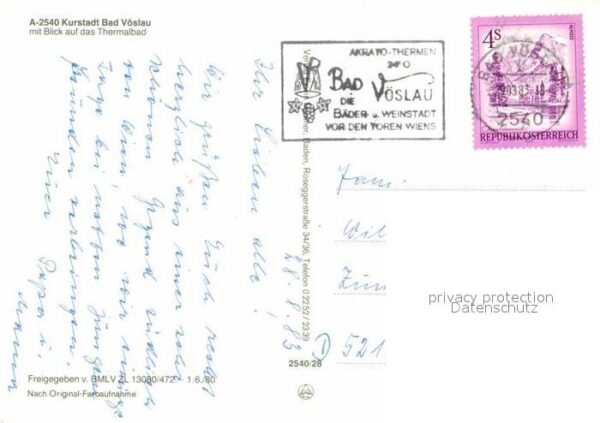 A-2540 Kurstadt Bad Vöslau
mit Blick auf das Thermalbad
AKRATO-THERMEN
2540
BAD
VÖSLAU
DIE
BÄDER- u. WEINSTADT
VOR DEN TOREN WIENS
4S
REPUBLIK ÖSTERREICH
BAD VÖSLAU
2540
Baden, Roseggerstraße 34/36, Telefon 0 22 52 / 23 39
28.8.83
Ihr Lieben alle!
Wir grüßen Euch recht
herzlich aus einer sehr
schönen Gegend südlich
von Wien, wo wir einige
Tage bei
verbringen.
Papa u.
Fam.
Wil
D 521
privacy protection
Datenschutz
2540/28
Freigegeben v. BMLV ZL 13080/472 - 1.6/80
Nach Original-Farbaufnahme